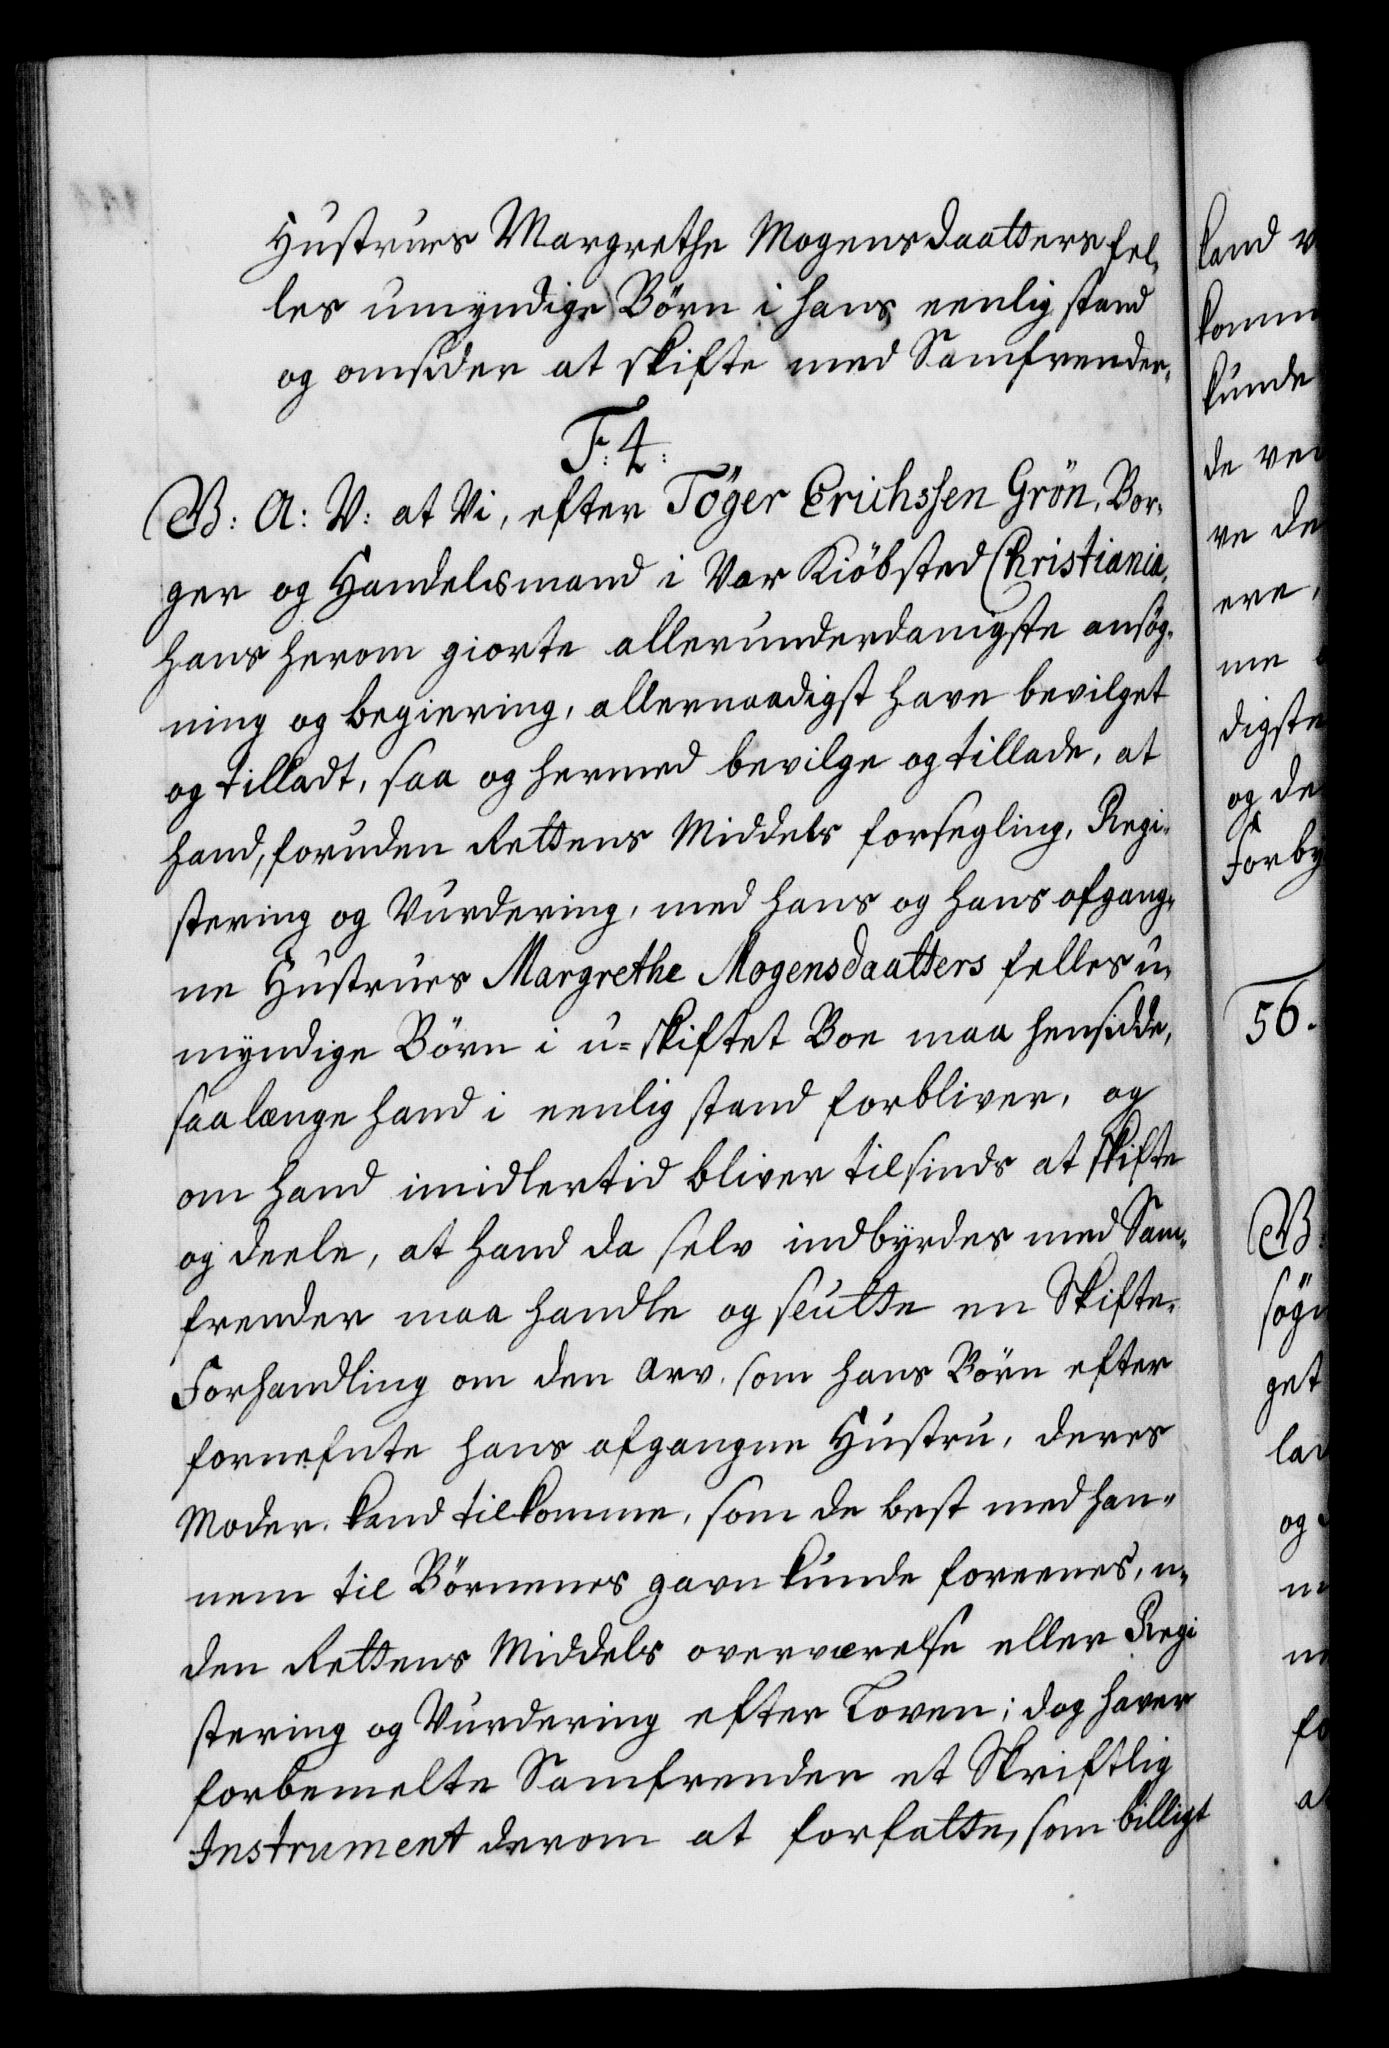 Hustrues Margrethe Mogensdaatters fel-
les umyndige Börn i hans eenlig stand
og omsider at skifte med Samfrender.
F: 4:
B: A: V: at Vi, efter Töger Erichssen Grön, Bor-
ger og Handelsmand i Vor Kiöbsted Christiania,
hans herom giorte allerunderdanigste ansög-
ning og begiering, allernaadigst have bevilget
og tilladt, saa og hermed bevilge og tillade, at
hand, foruden Rettens Middels forsegling, Regi-
stering og Vurdering, med hans og hans afgang-
ne Hustrues Margrethe Mogensdaatters felles u-
myndige Börn i u-skiftet Boe maa hensidde,
saalænge hand i eenlig stand forbliver, og
om hand imidlertid bliver tilsinds at skifte
og deele, at hand da selv indbyrdes med Sam-
frender maa handle og slutte en Skifte-
Forhandling om den Arv, som hans Börn efter
fornefnte hans afgangne Hustru, deres
Moder, kand tilkomme, som de best med han-
nem til Börnenes gavn kunde foreenes, u-
den Rettens Middels overværelse eller Regi
stering og Vurdering efter Loven; dog haver
forbemelte Samfrender et Skriftlig
Instrument derom at forfatte, som billigt
kand
komm
kunde
de ve
ve de
ere,
me
digste
og de
Forby
56.
B:
søgn
get
lad
og